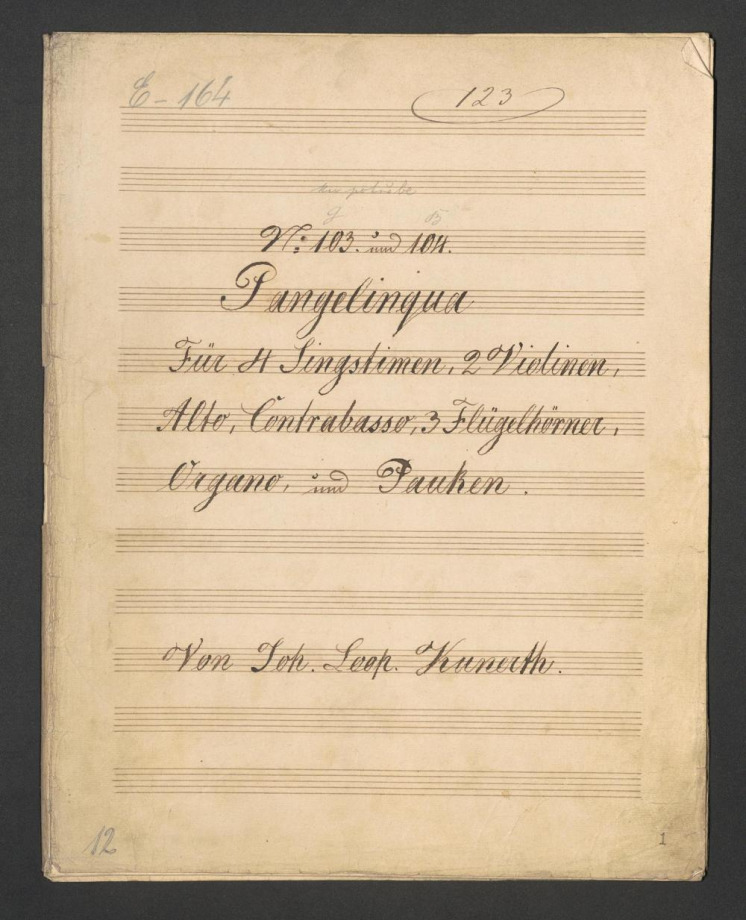 E-164
123
No: 103. und 104.
Pangelingua
Für 4 Singstimen, 2 Violinen,
Alto, Contrabasso, 3 Flügelhörner,
Organo, und Pauken.
Von Joh. Leop. Kunerth.
12
1